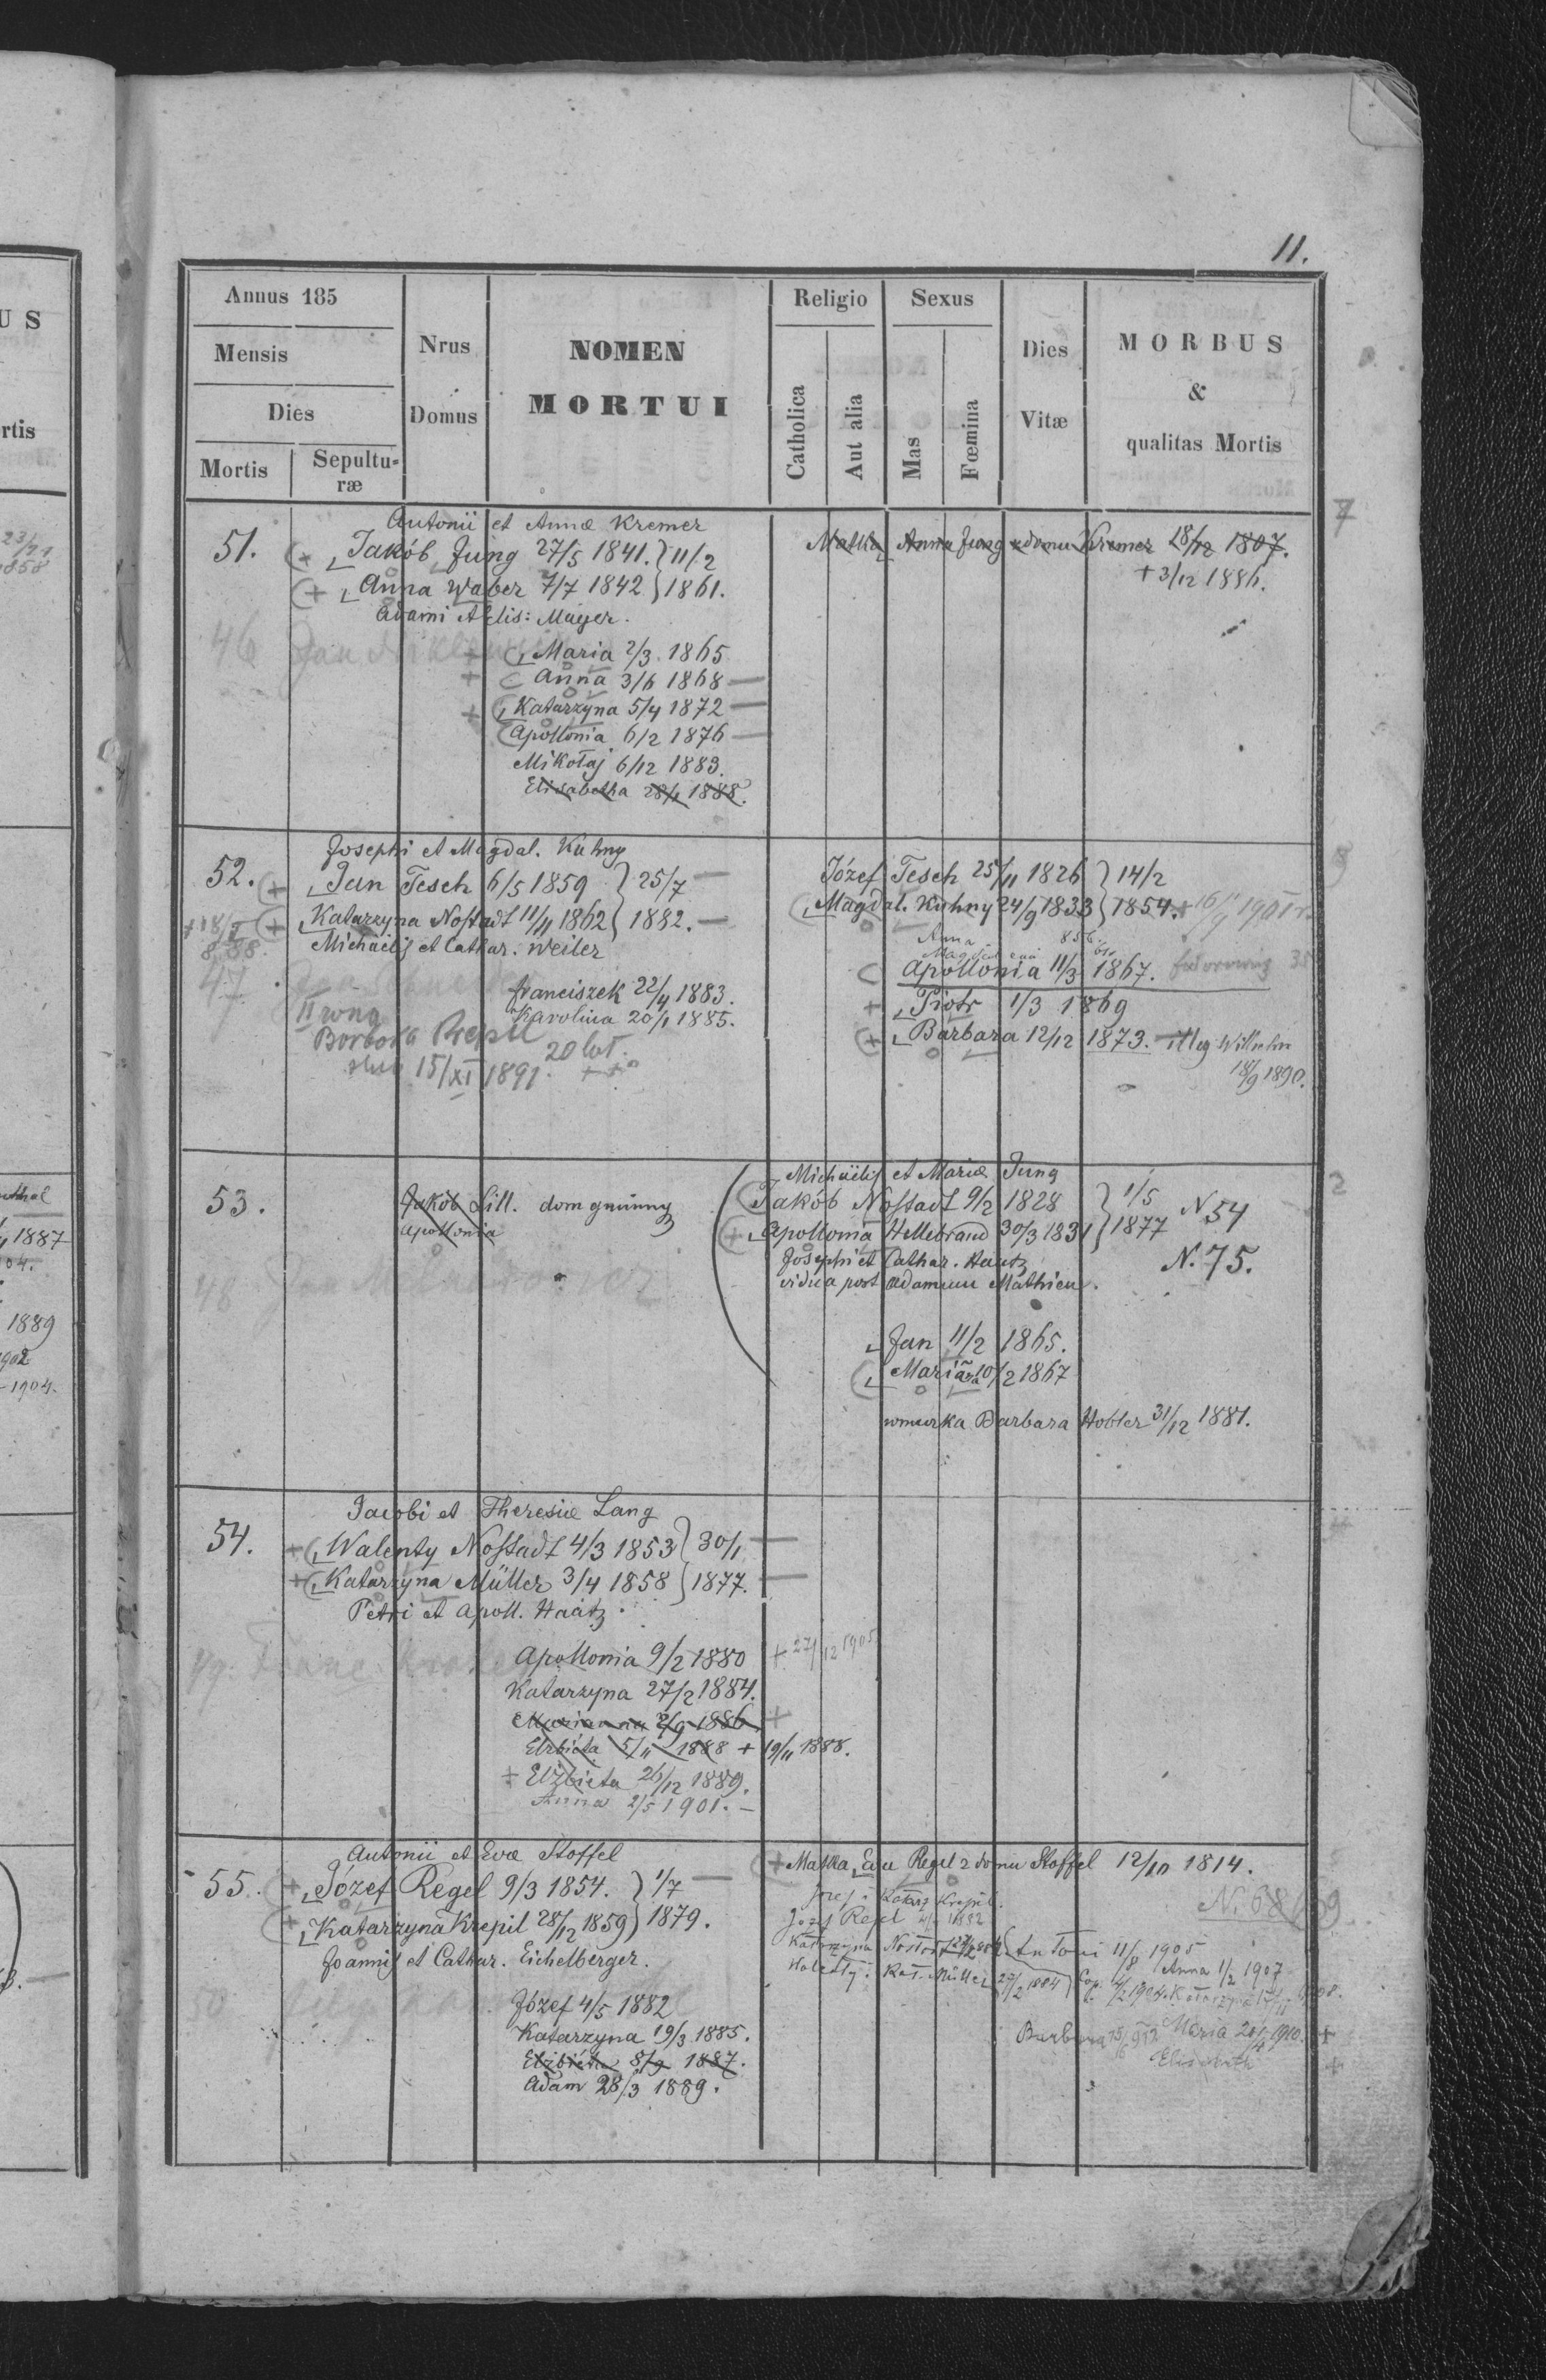 11.
Annus 185
Mensis
Dies
Mortis
Sepultu-
ræ
Nrus
Domus
NOMEN
MORTUI
Religio
Catholica
Aut alia
Sexus
Mas
Fœmina
Dies
Vitæ
MORBUS
&
qualitas Mortis
51.
Antonii et Annæ Kremer
Jakób Jung 27/5 1841. } 11/2
Anna Waber 7/7 1842 } 1861.
Adami et Elis: Mayer.
Maria 2/3 1865
Anna 3/6 1868 —
Katarzyna 5/4 1872 —
Apollonia 6/2 1876 —
Mikołaj 6/12 1883.
Elisabetha 28/1 1888.
Matka Anna Jung z domu Kremer 18/12 1807.
+ 3/12 1886.
46 Jan
7
52.
Josephi et Magdal. Kuhny
Jan Tesch 6/5 1859 } 25/7 —
Katarzyna Nostadt 11/4 1862 } 1882. —
Michaëlis et Cathar. Weiler
Franciszek 22/4 1883.
Karolina 20/1 1885.
47
II
Barbara Krepil
20 lat.
15/XI 1891.
Józef Tesch 25/11 1826 } 14/2
Magdal. Kuhny 24/9 1833 } 1854. 1901 r.
Anna
Apollonia 11/3 1867.
Piotr 1/3 1869
Barbara 12/12 1873. — illeg Wilhelm
18/9 1890.
53.
Jakób Lill. dom gminny
Apollonia
48
Michaëlis et Mariæ Jung
Jakób Nostadt 9/2 1828 } 1/5 N 54
Apollonia Hellebrand 30/3 1831 } 1877
Josephi et Cathar. Hautz N. 75.
vidua post Adamum Mathieu.
Jan 11/2 1865.
Marianna 10/2 1867
wnuczka Barbara Hobler 31/12 1881.
2
54.
Jacobi et Theresiæ Lang
Walenty Nostadt 4/3 1853 } 30/1 —
Katarzyna Müller 3/4 1858 } 1877. —
Petri et Apoll. Haatz.
49. Franc.
Apollonia 9/2 1880 + 27/12 1905
Katarzyna 27/2 1884.
Marianna 2/9 1886. +
Elzbieta 5/11 1888 + 19/11 1888.
+ Elzbieta 26/12 1889.
Anna 2/5 1901. —
55.
Antonii et Evæ Stoffel
Józef Regel 9/3 1854. } 1/7 —
Katarzyna Krepil 28/12 1859 } 1879.
Joannis et Cathar. Eichelberger.
50
Józef 4/5 1882
Katarzyna 19/3 1885.
Elzbieta 8/9 1887.
Adam 28/3 1889.
+ Matka, Ewa Regel z domu Stoffel 12/10 1814.
Józef i Katarz Krepil.
Józef Regel 1882
Katarzyna Nostadt Antoni 11/8 1905
Walenty i Kat. Müller 1884 Anna 1/2 1907
Barbara Maria 1910. +
Elisabeth +
1887
1889
1902
1904.